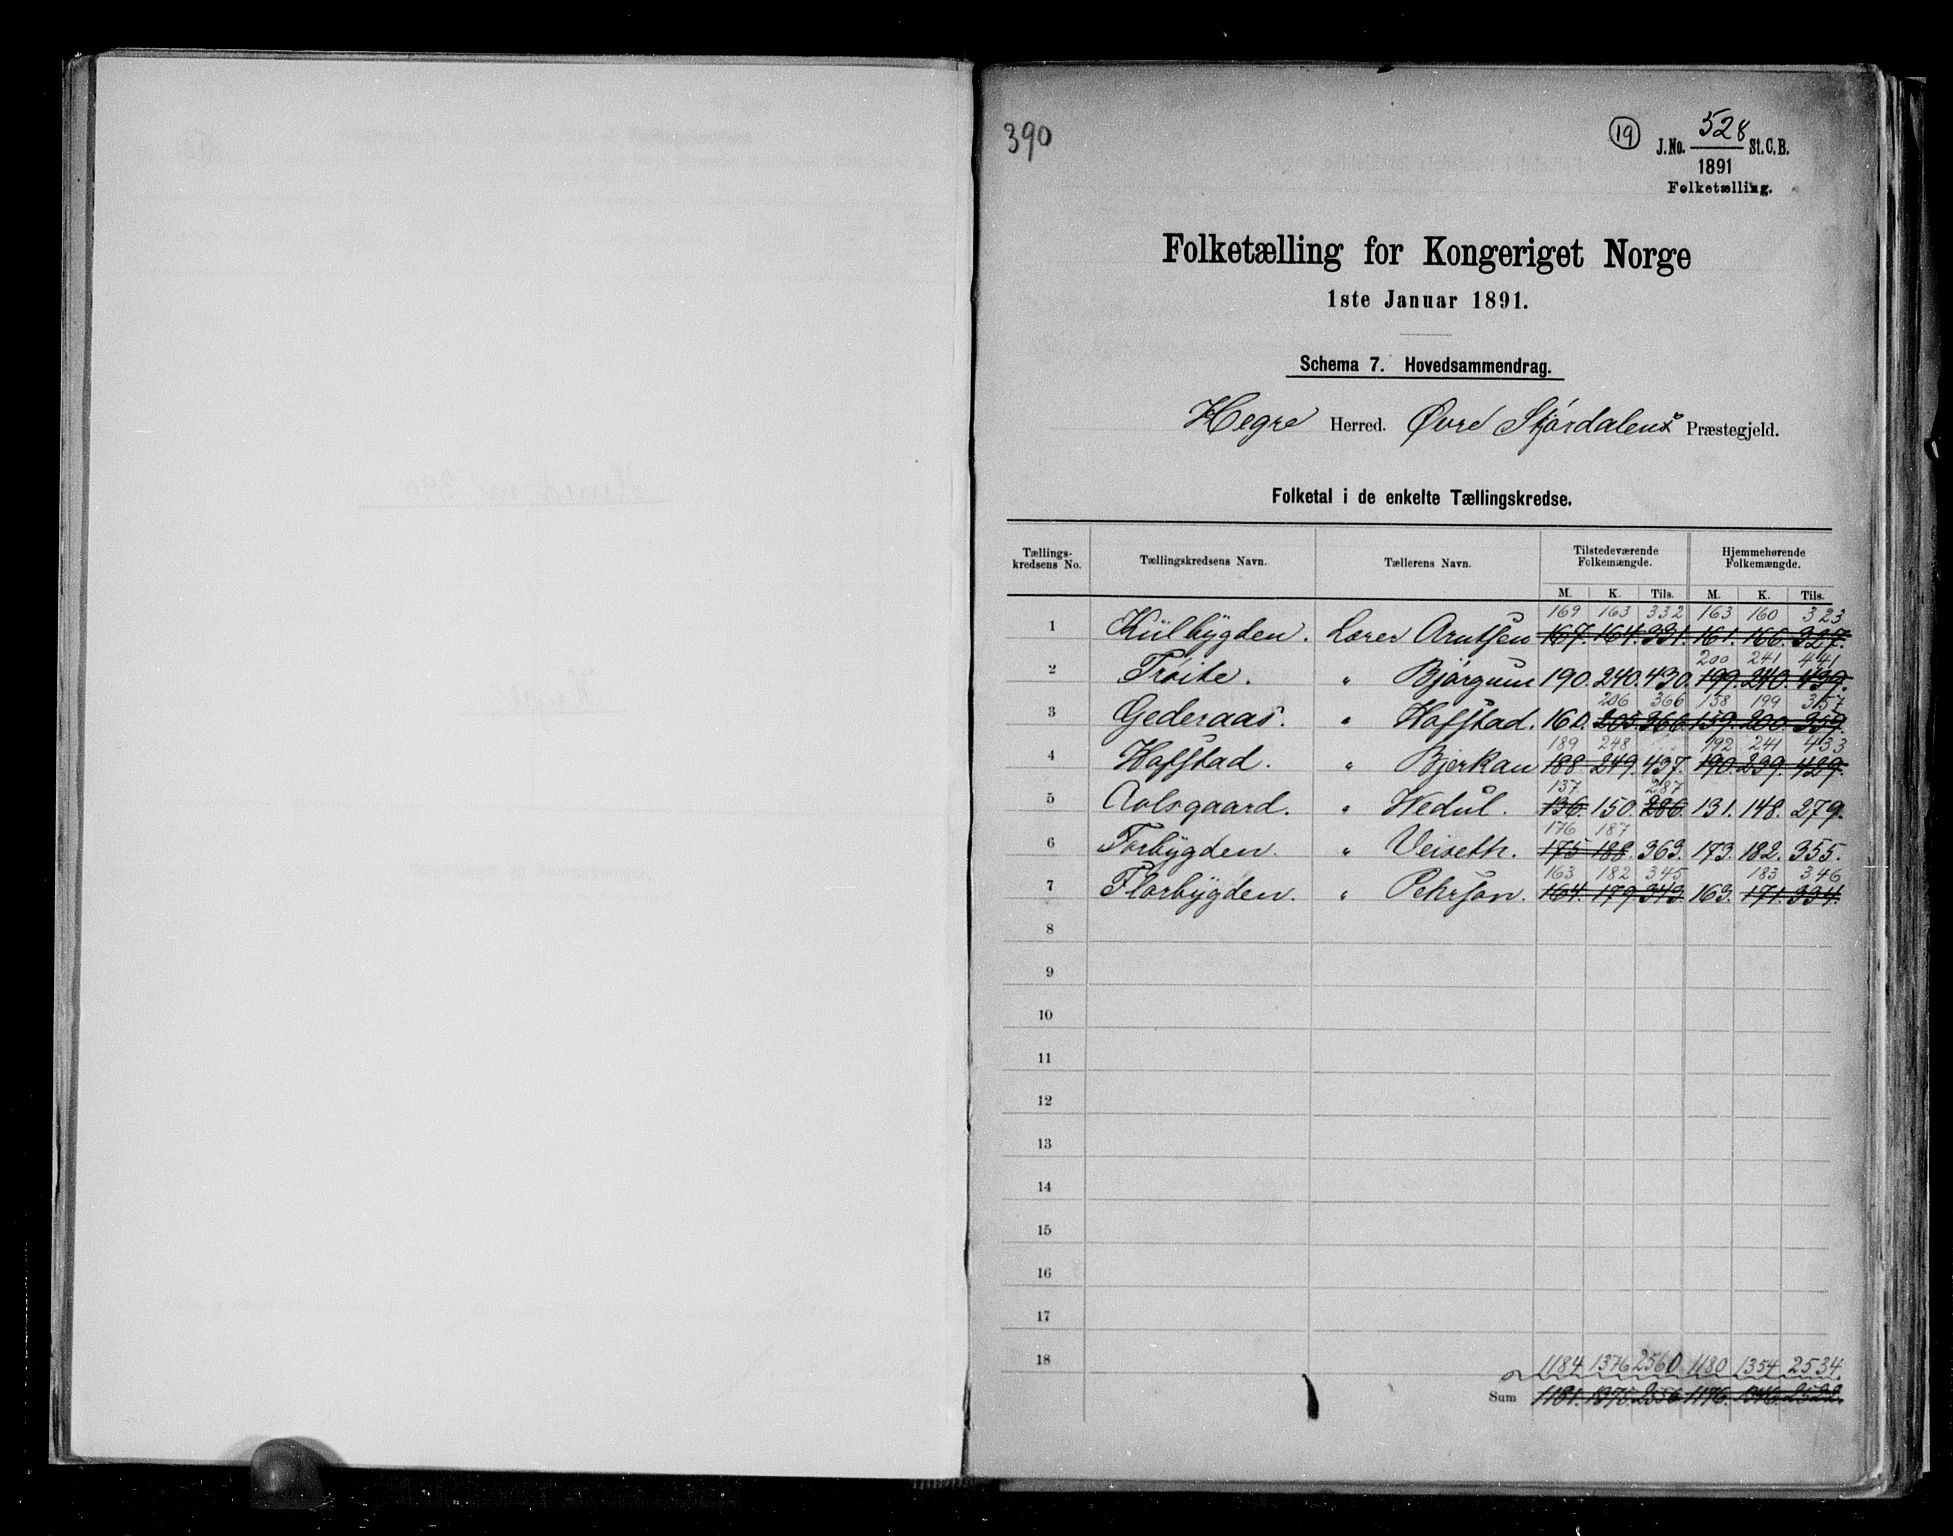 390
19
J.No. 528 St.C.B.
1891
Folketælling.
Folketælling for Kongeriget Norge
1ste Januar 1891.
Schema 7. Hovedsammendrag.
Hegre Herred. Øvre Stjørdalens Præstegjeld.
Folketal i de enkelte Tællingskredse.
Tællings-kredsens No. Tællingskredsens Navn. Tællerens Navn. Tilstedeværende Folkemængde. Hjemmehørende Folkemængde.
M. K. Tils. M. K. Tils.
169 163 332 163 160 323
1 Kilbygden. Lærer Arntsen 167. 164. 331. 161. 166. 327.
200 241 441
2 Trøite. " Bjørgum 190. 240. 430. 199. 240. 439.
206 366 158 199 357
3 Gederaas. " Hofstad. 160. 205. 366. 159. 200. 359.
189 248 192 241 433
4 Hofstad. " Bjerkan 188. 249. 437. 190. 239. 429.
137 287
5 " Wedul. 136. 150. 286. 131. 148. 279.
176 187
6 Forbygden. " Veiseth. 175 188. 363. 173. 182. 355.
163 182 345 183 346
7 Florbygden. " Pehrson. 164. 179 343. 163. 171. 334.
8
9
10
11
12
13
14
15
16
17
18 1184 1376 2560 1180 1354 2534
Sum 1181. 1375. 2556 1176. 1346. 2522.